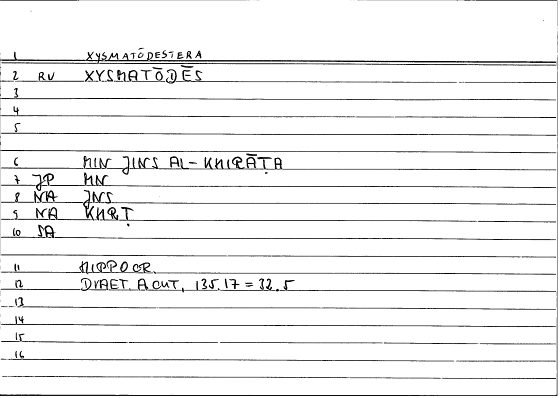 1 XYSMATŌDESTERA
2 RV XYSMATŌDĒS
3
4
5
6 MIN JINS AL-KHIRĀṬA
7 JP MN
8 NA JNS
9 NA KHRṬ
10 SA
11 HIPPOCR.
12 DIAET. ACUT. 135.17 = 32.5
13
14
15
16